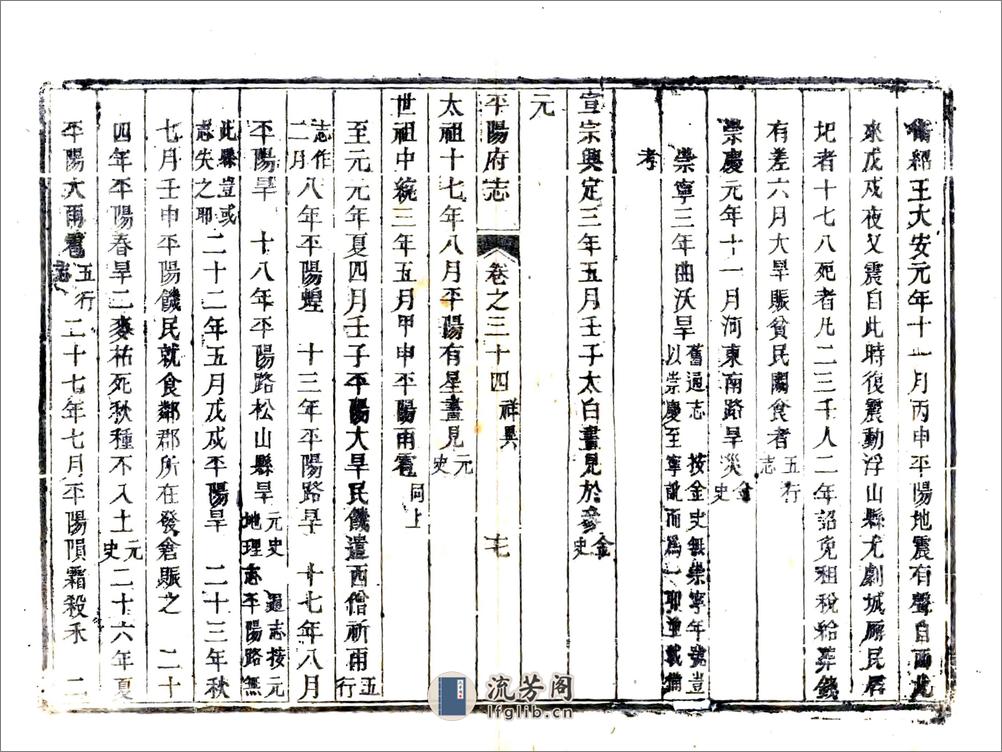 衛紹王大安元年十一月丙申平陽地震有聲自西北
來戊戌夜又震自此時復震動浮山縣尤劇城廨民居
圮者十七八死者凡二三千人二年詔免租稅給葬錢
有差六月大旱賑貧民闕食者五行志
崇慶元年十一月河東南路旱災金史
崇寧三年曲沃旱舊通志 按金史無崇寧年號豈以崇慶至寧訛而為一耶並載備
考
宣宗興定三年五月壬子太白晝見於參金史
元
平陽府志 卷之三十四 祥異 七
太祖十七年八月平陽有星晝見元史
世祖中統三年五月甲申平陽雨雹同上
至元元年夏四月壬子平陽大旱民饑遣西僧祈雨五行
志作二月八年平陽蝗 十三年平陽路旱 十七年八月
平陽旱 十八年平陽路松山縣旱元史 通志按元地理志平陽路無
此縣豈或志失之耶二十二年五月戊戌平陽旱 二十三年秋
七月壬申平陽饑民就食鄰郡所在發倉賑之 二十
四年平陽春旱二麥枯死秋種不入土元史二十六年夏
平陽大雨雹五行志二十七年七月平陽隕霜殺禾 二
流芳阁
lfglib.cn